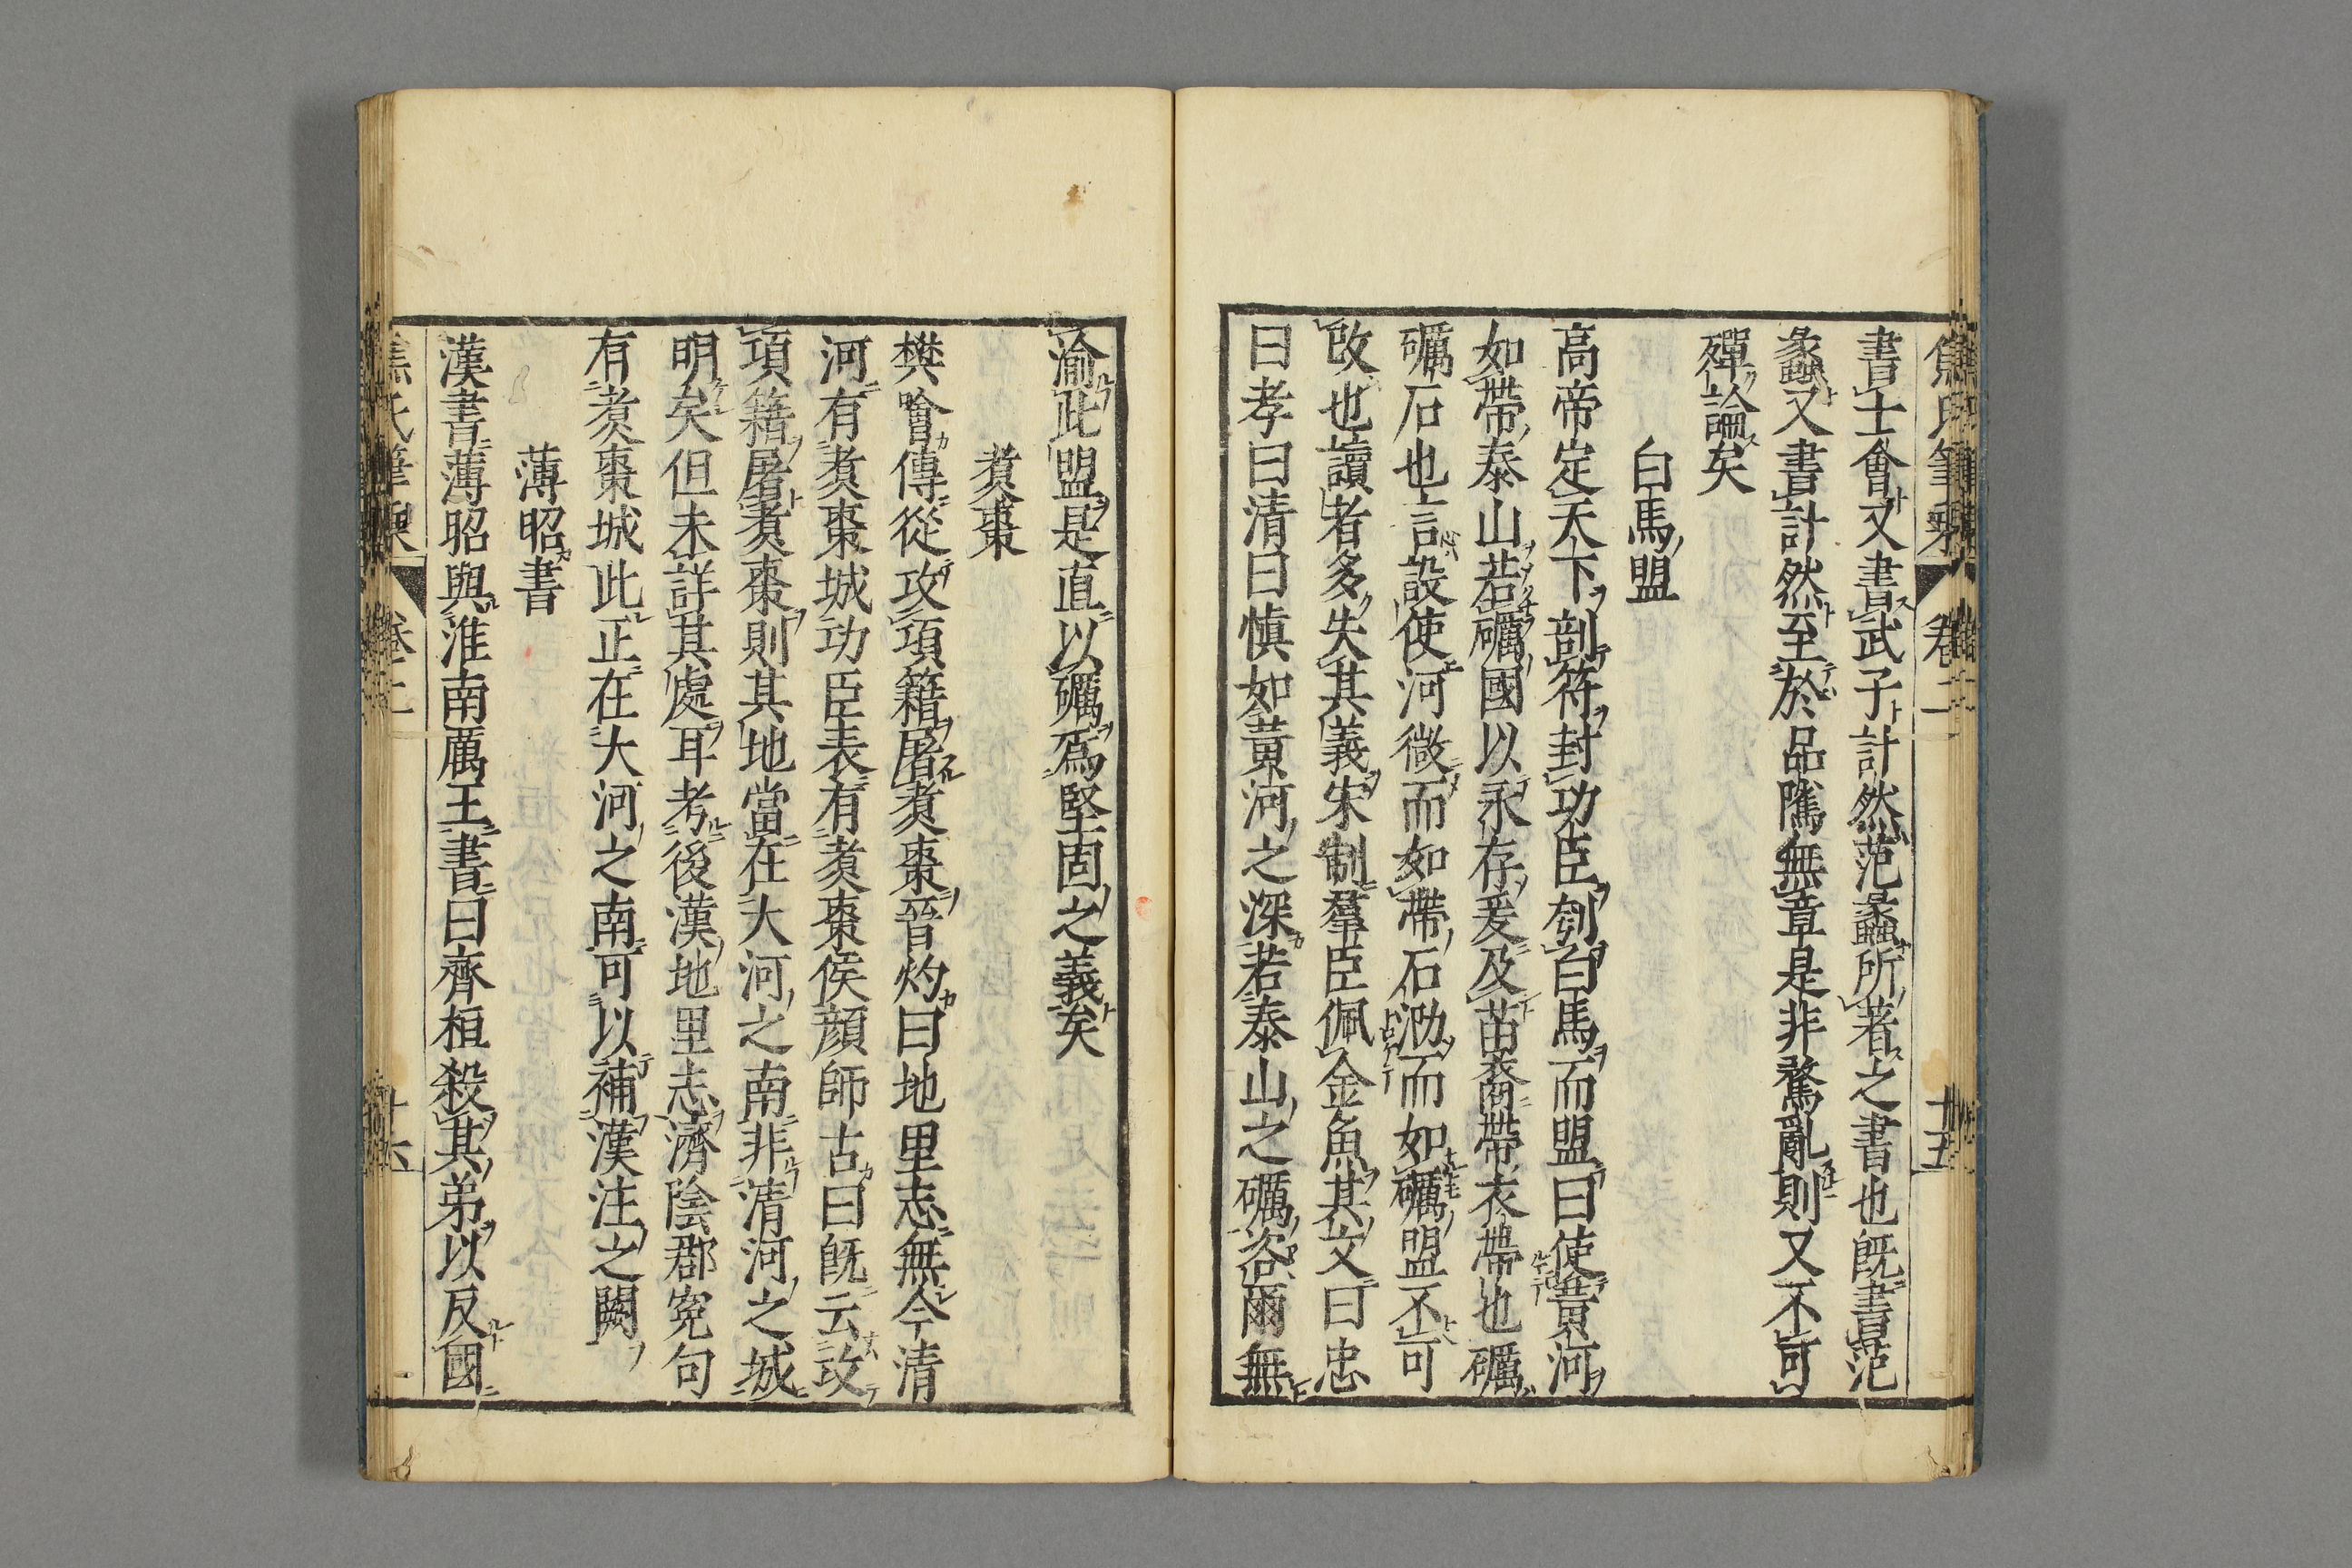 焦氏筆乘 卷二 十五
書士會又書武子計然范蠡所著之書也旣書范
蠡又書計然至於品隲無章是非騖亂則又不可
殫論矣
白馬盟
高帝定天下剖符封功臣刳白馬而盟曰使黃河
如帶泰山若礪國以永存爰及苗裔帶衣帶也礪
礪石也言設使河微而如帶石泐而如礪盟不可
改也讀者多失其義宋制羣臣佩金魚其文曰忠
曰孝曰清曰愼如黃河之深若泰山之礪咨爾無
渝此盟是直以礪爲堅固之義矣
煑棗
樊噲傳從攻項籍屠煑棗晉灼曰地里志無今清
河有煑棗城功臣表有煑棗侯顔師古曰旣云攻
項籍屠煑棗則其地當在大河之南非清河之城
明矣但未詳其處耳考後漢地里志濟陰郡宛句
有煑棗城此正在大河之南可以補漢注之闕
薄昭書
漢書薄昭與淮南厲王書曰齊桓殺其弟以反國
焦氏筆乘 卷二 十六